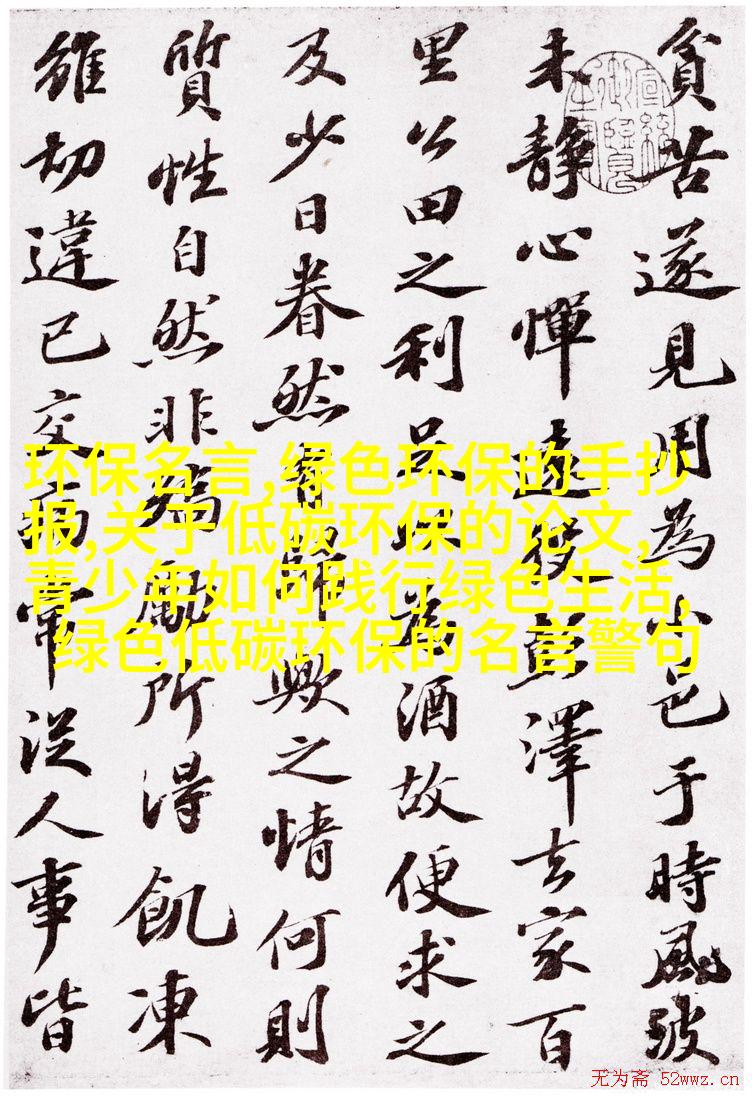 貧苦遂見用為小邑于時風波
未靜心憚遠役彭澤去家百
里公田之利足以為酒故便求之
及少日眷然有歸歟之情何則
質性自然非矯勵所得飢凍
雖切違已交病常從人事皆
环保名言,绿色环保的手抄
报,关于低碳环保的论文,
青少年如何践行绿色生活,
绿色低碳环保的名言警句
无为斋 52wwz.cn